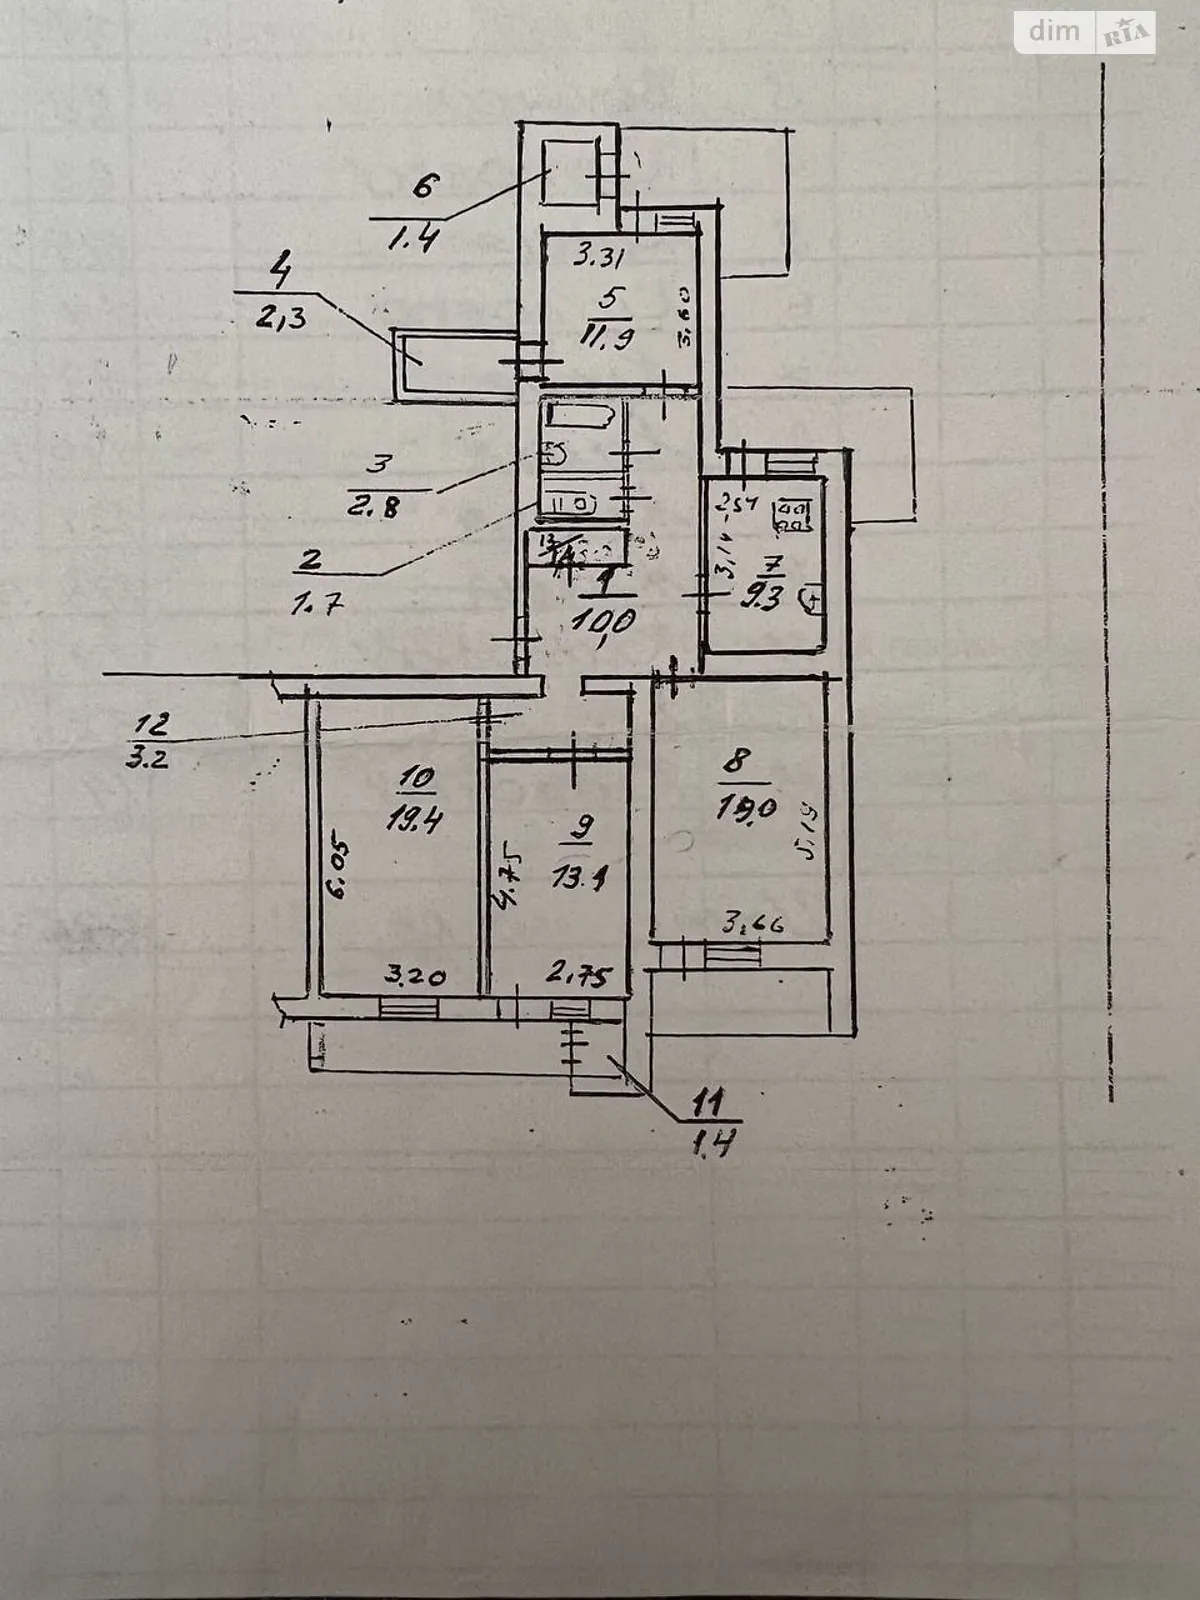 dim RIA
6
1.4
4
2,3
3.31
5
11.9
3.60
3
2.8
2
1.7
2,54
3,14
7
9.3
13
1
10,0
12
3.2
10
19.4
6.05
3.20
9
13.1
4.75
2,75
8
19,0
5,19
3,66
11
1.4